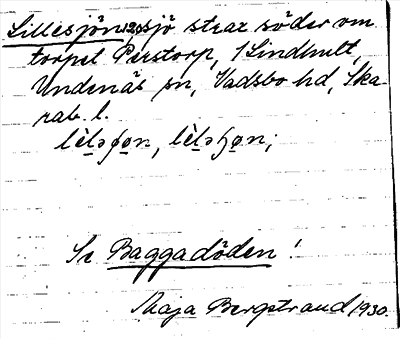 Lillesjön, sjö strax söder om
torpet Perstorp, 1 Lindhult,
Undenäs sn, Vadsbo hd, Ska-
rab. l.
Se Baggadöden!
Maja Bergstrand 1930.